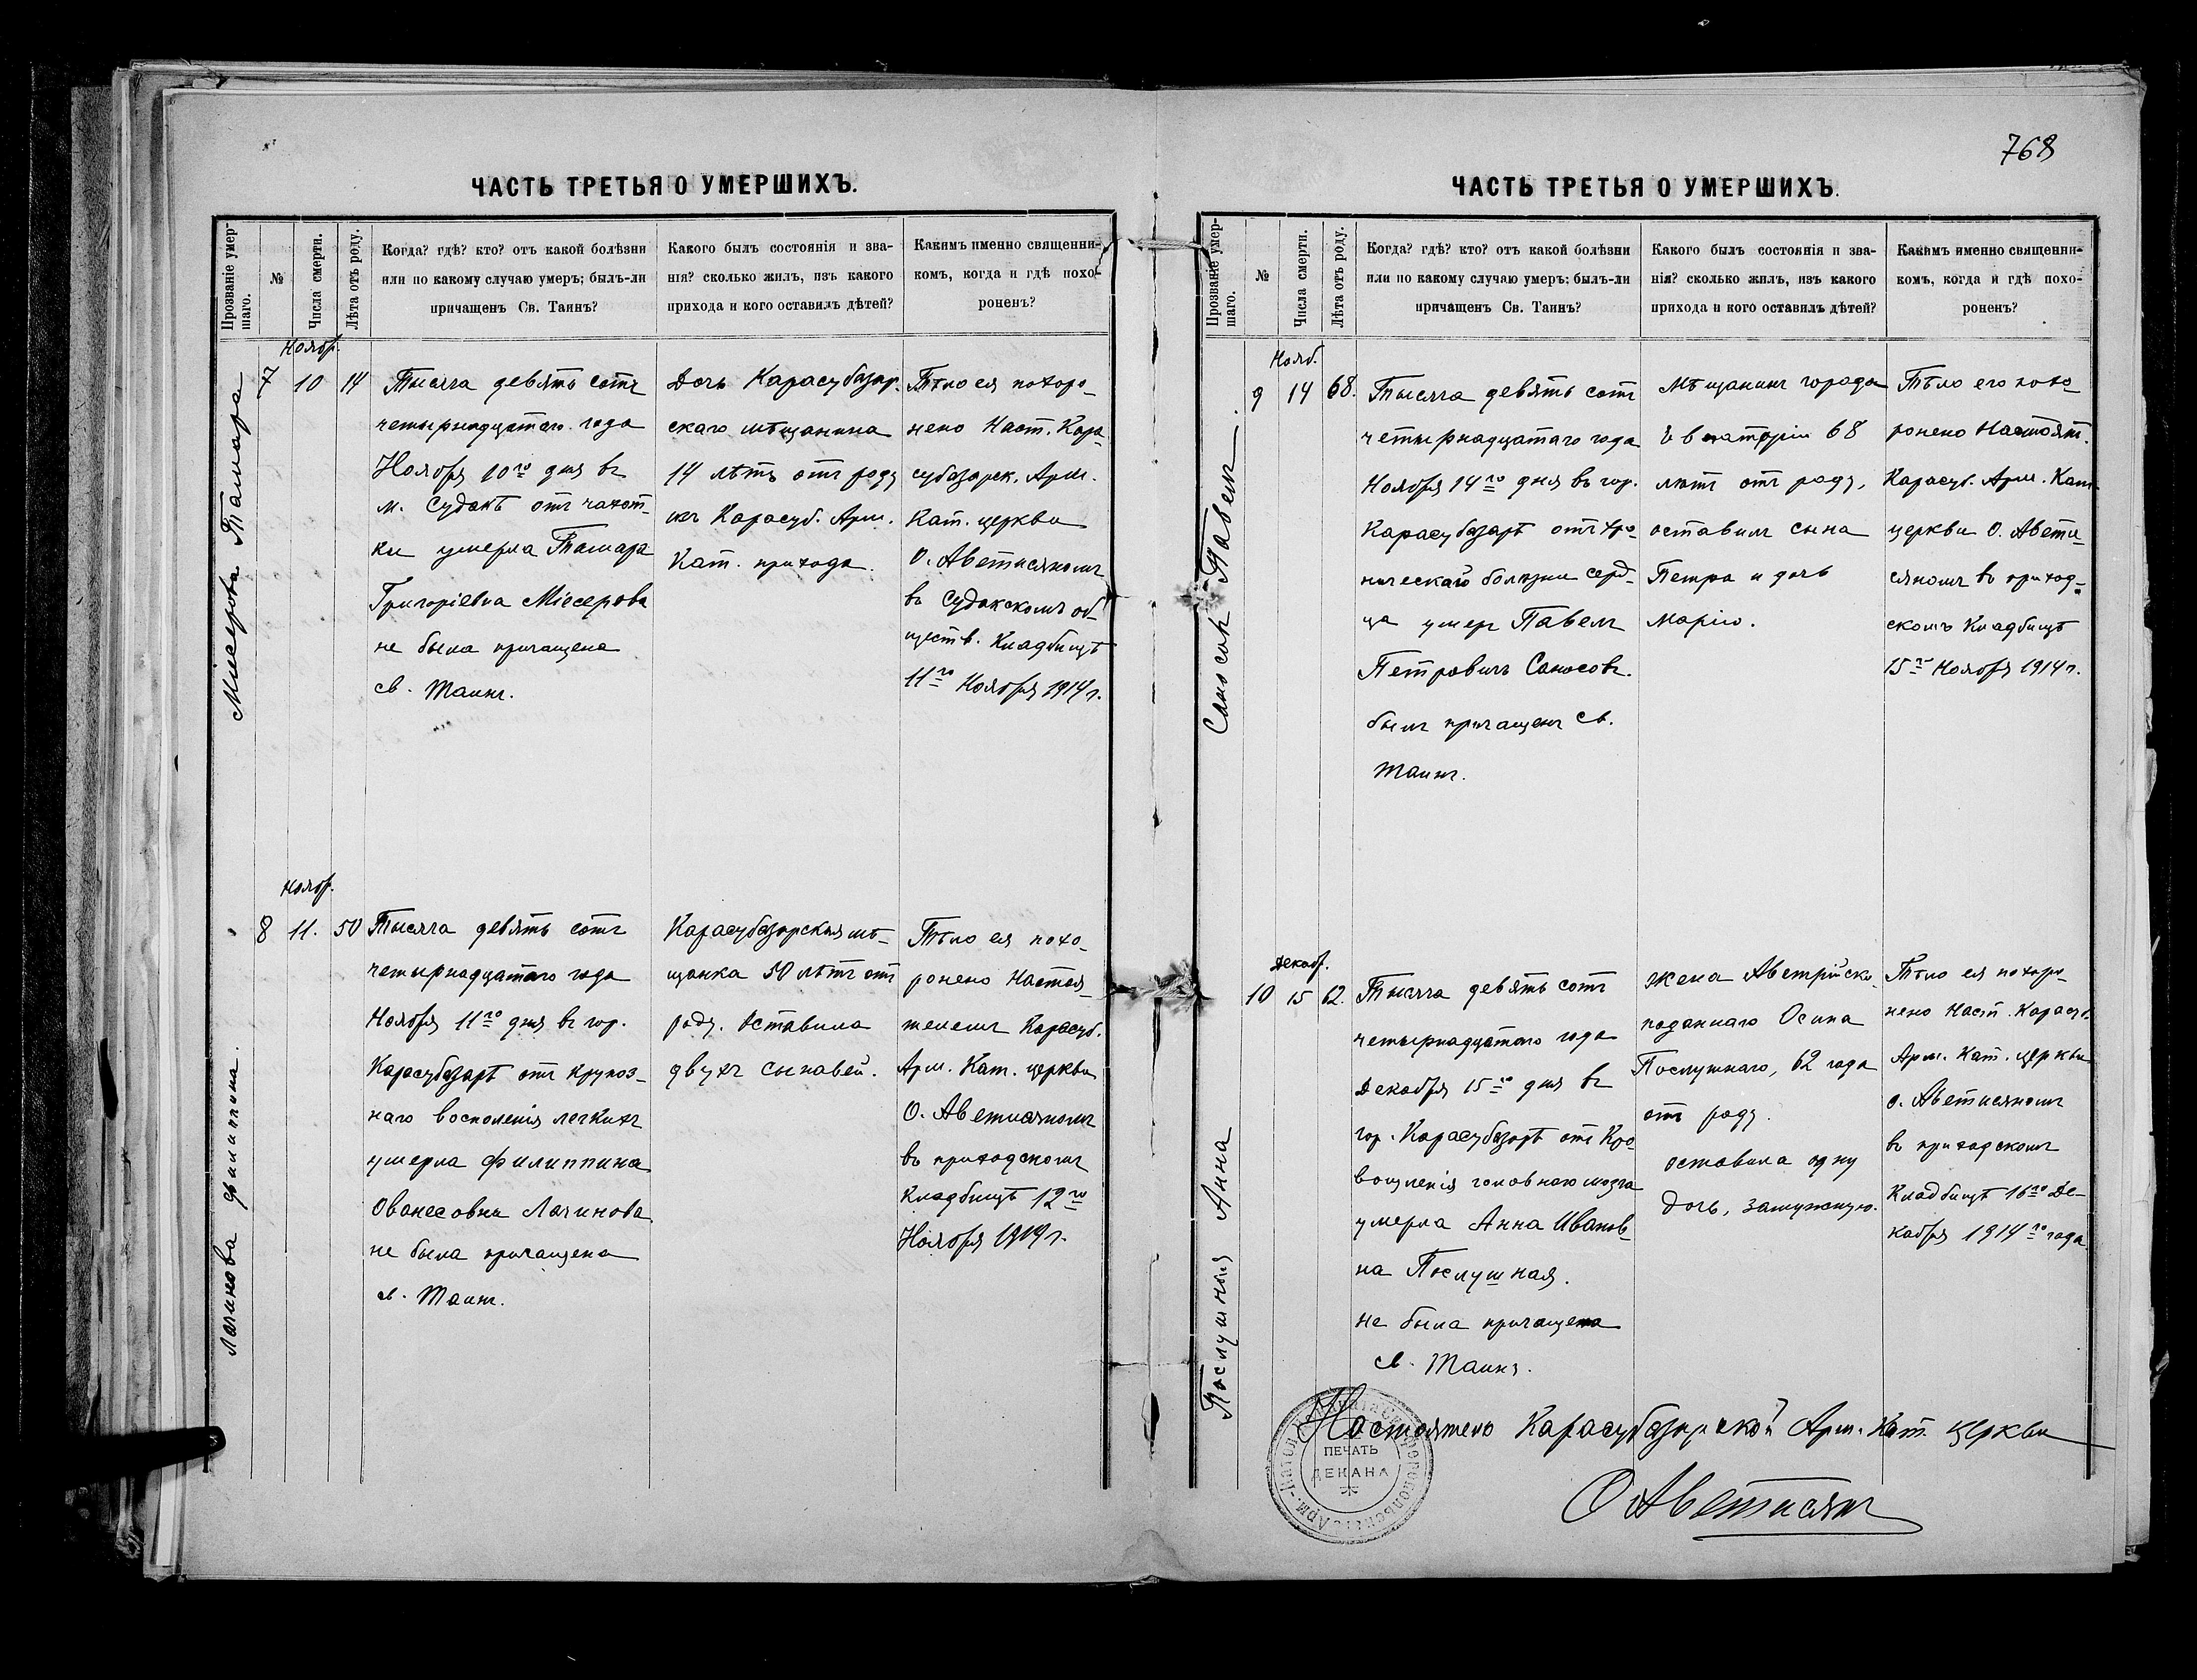 768
ЧАСТЬ ТРЕТЬЯ О УМЕРШИХЪ.
Прозваніе умер-
шаго.
№
Числа смерти.
Лѣта отъ роду.
Когда? гдѣ? кто? отъ какой болѣзни
или по какому случаю умеръ; былъ-ли
причащенъ Св. Таинъ?
Какого былъ состоянія и зва-
нія? сколько жилъ, изъ какого
прихода и кого оставилъ дѣтей?
Какимъ именно священни-
комъ, когда и гдѣ похо-
роненъ?
Місерова Тамара
Ноябр.
7
10
14
Тысяча девять сотъ
четырнадцатаго года
Ноября 10го дня въ
м. Судакѣ отъ чахот-
ки умерла Тамара
Григоріевна Місерова
не была причащена
св. Таинъ.
Дочь Карасубазар.
скаго мѣщанина
14 лѣтъ отъ роду
изъ Карасуб. Арм.
Кат. прихода.
Тѣло ея похоро-
нено Наст. Кара-
субазарск. Арм.
Кат. церкви
О. Аветисяномъ
въ Судакскомъ об-
ществ. Кладбищѣ
11го Ноября 1914 г.
Лачинова Филиппина.
Ноябр.
8
11.
50
Тысяча девять сотъ
четырнадцатаго года
Ноября 11го дня въ гор.
Карасубазарѣ отъ крупоз-
наго воспаленія легкихъ
умерла Филиппина
Ованесовна Лачинова
не была причащена
св. Таинъ.
Карасубазарская мѣ-
щанка 50 лѣтъ отъ
роду. Оставила
двухъ сыновей.
Тѣло ея похо-
ронено Настоя-
телемъ Карасуб.
Арм. Кат. церкви
О. Аветисяномъ
въ приходскомъ
Кладбищѣ 12го
Ноября 1914 г.
ЧАСТЬ ТРЕТЬЯ О УМЕРШИХЪ.
Прозваніе умер-
шаго.
№
Числа смерти.
Лѣта отъ роду.
Когда? гдѣ? кто? отъ какой болѣзни
или по какому случаю умеръ; былъ-ли
причащенъ Св. Таинъ?
Какого былъ состоянія и зва-
нія? сколько жилъ, изъ какого
прихода и кого оставилъ дѣтей?
Какимъ именно священни-
комъ, когда и гдѣ похо-
роненъ?
Павелъ
Нояб.
9
14
68.
Тысяча девять сотъ
четырнадцатаго года
Ноября 14го дня въ гор.
Карасубазарѣ отъ хро-
ническаго болѣзни серд-
ца умеръ Павелъ
Петровичъ Саносовъ.
былъ причащенъ св.
Таинъ.
Мѣщанинъ города
Евпаторіи 68
лѣтъ отъ роду,
оставилъ сына
Петра и дочь
Марію.
Тѣло его похо-
ронено Настоят.
Карасуб. Арм. Кат.
церкви О. Авети-
сяномъ въ приход-
скомъ Кладбищѣ
15го Ноября 1914 г.
Послушная Анна
Декабр.
10
15
62.
Тысяча девять сотъ
четырнадцатаго года
Декабря 15го дня въ
гор. Карасубазарѣ отъ Кро-
воизлеянія головного мозга
умерла Анна Иванов-
на Послушная.
не была причащена
св. Таинъ.
жена Австрійско.
поданнаго Осипа
Послушнаго, 62 года
отъ роду.
оставила одну
дочь, замужную.
Тѣло ея похоро-
нено Наст. Карасуб.
Арм. Кат. церкви
О. Аветисяномъ
въ приходскомъ
Кладбищѣ 16го Де-
кабря 1914го года
Настоятель Карасубазарской Арм. Кат. церкви
О Аветисянъ
ПЕЧАТЬ
ДЕКАНА